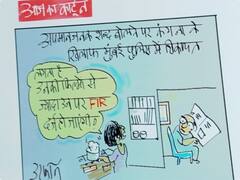 आज का कार्टून
अपमानजनक शब्द बोलने पर कंगना के
खिलाफ मुंबई पुलिस में शिकायत
लगता है
उनकी फिल्मों से
ज्यादा उन पर FIR
दर्ज हो जाएंगी